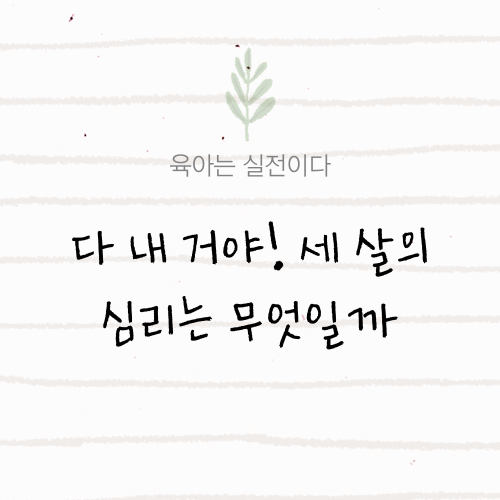 육아는 실전이다
다 내 거야! 세 살의
심리는 무엇일까